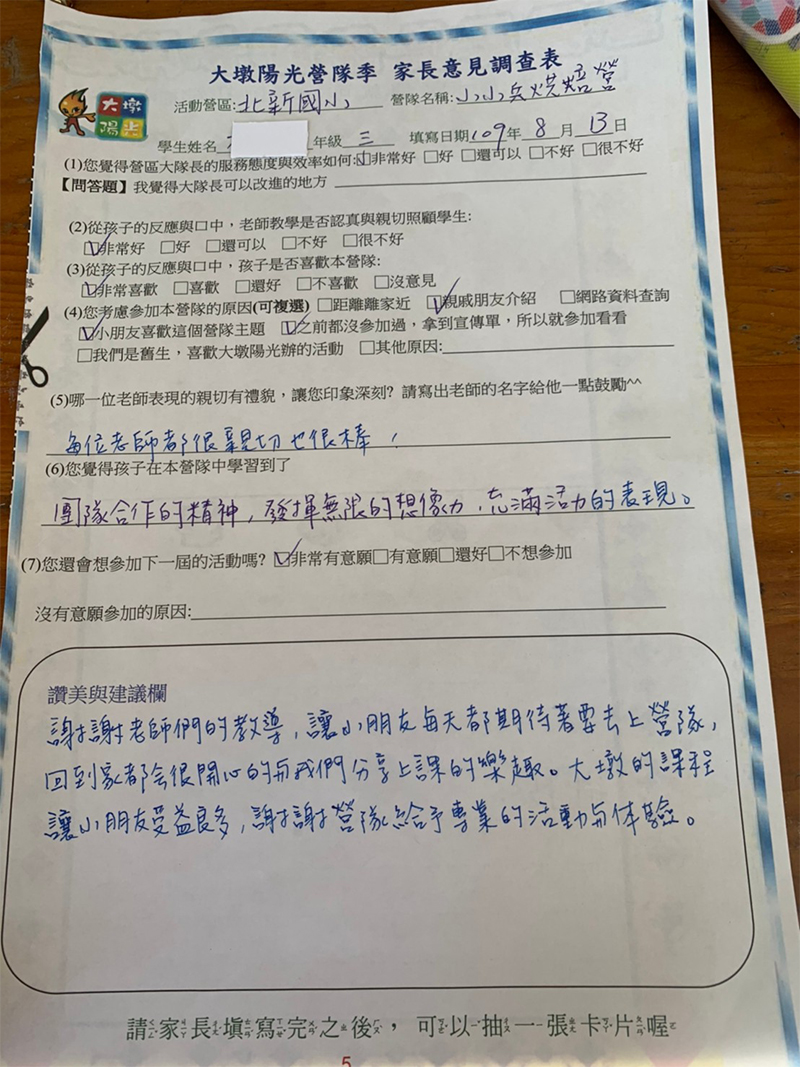 大墩陽光營隊季 家長意見調查表
大墩陽光
活動營區:北新國小 營隊名稱:小小兵烘焙營
學生姓名 年級 三 填寫日期109年 8 月 13 日
(1)您覺得營區大隊長的服務態度與效率如何:☑非常好 □好 □還可以 □不好 □很不好
【問答題】我覺得大隊長可以改進的地方
(2)從孩子的反應與口中,老師教學是否認真與親切照顧學生:
☑非常好 □好 □還可以 □不好 □很不好
(3)從孩子的反應與口中,孩子是否喜歡本營隊:
☑非常喜歡 □喜歡 □還好 □不喜歡 □沒意見
(4)您考慮參加本營隊的原因(可複選) □距離離家近 ☑親戚朋友介紹 □網路資料查詢
☑小朋友喜歡這個營隊主題 ☑之前都沒參加過,拿到宣傳單,所以就參加看看
□我們是舊生,喜歡大墩陽光辦的活動 □其他原因:
(5)哪一位老師表現的親切有禮貌,讓您印象深刻? 請寫出老師的名字給他一點鼓勵^^
每位老師都很親切也很棒!
(6)您覺得孩子在本營隊中學習到了
團隊合作的精神,發揮無限的想像力,充滿活力的表現。
(7)您還會想參加下一屆的活動嗎? ☑非常有意願□有意願□還好□不想參加
沒有意願參加的原因:
讚美與建議欄
謝謝老師們的教導,讓小朋友每天都期待著要去上營隊,
回到家都會很開心的與我們分享上課的樂趣。大墩的課程
讓小朋友受益良多,謝謝營隊給予專業的活動與体驗。
請家長填寫完之後,可以抽一張卡片喔
5